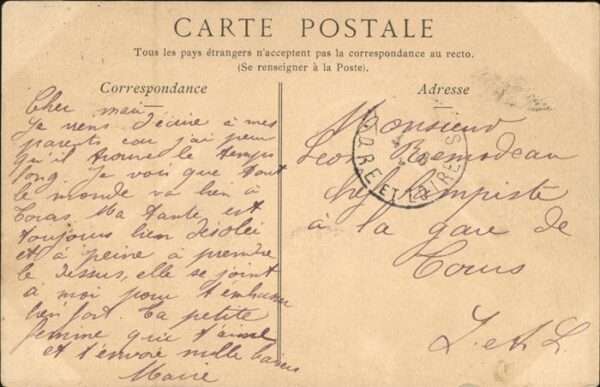 CARTE POSTALE
Tous les pays étrangers n'acceptent pas la correspondance au recto.
(Se renseigner à la Poste).
Correspondance
Cher mari
Je viens d'écrire à mes
parents car j'ai peur
qu'il trouve le temps
long. Je vois que tout
le monde va bien à
Tours. Ma tante est
toujours bien désolée
et à peine à prendre
le dessus, elle se joint
à moi pour t'embrasser
bien fort. Ta petite
femme qui t'aime
et t'envoie mille baisers
Marie
Adresse
Monsieur
Léon
chef lampiste
à la gare de
Tours
I. et L.